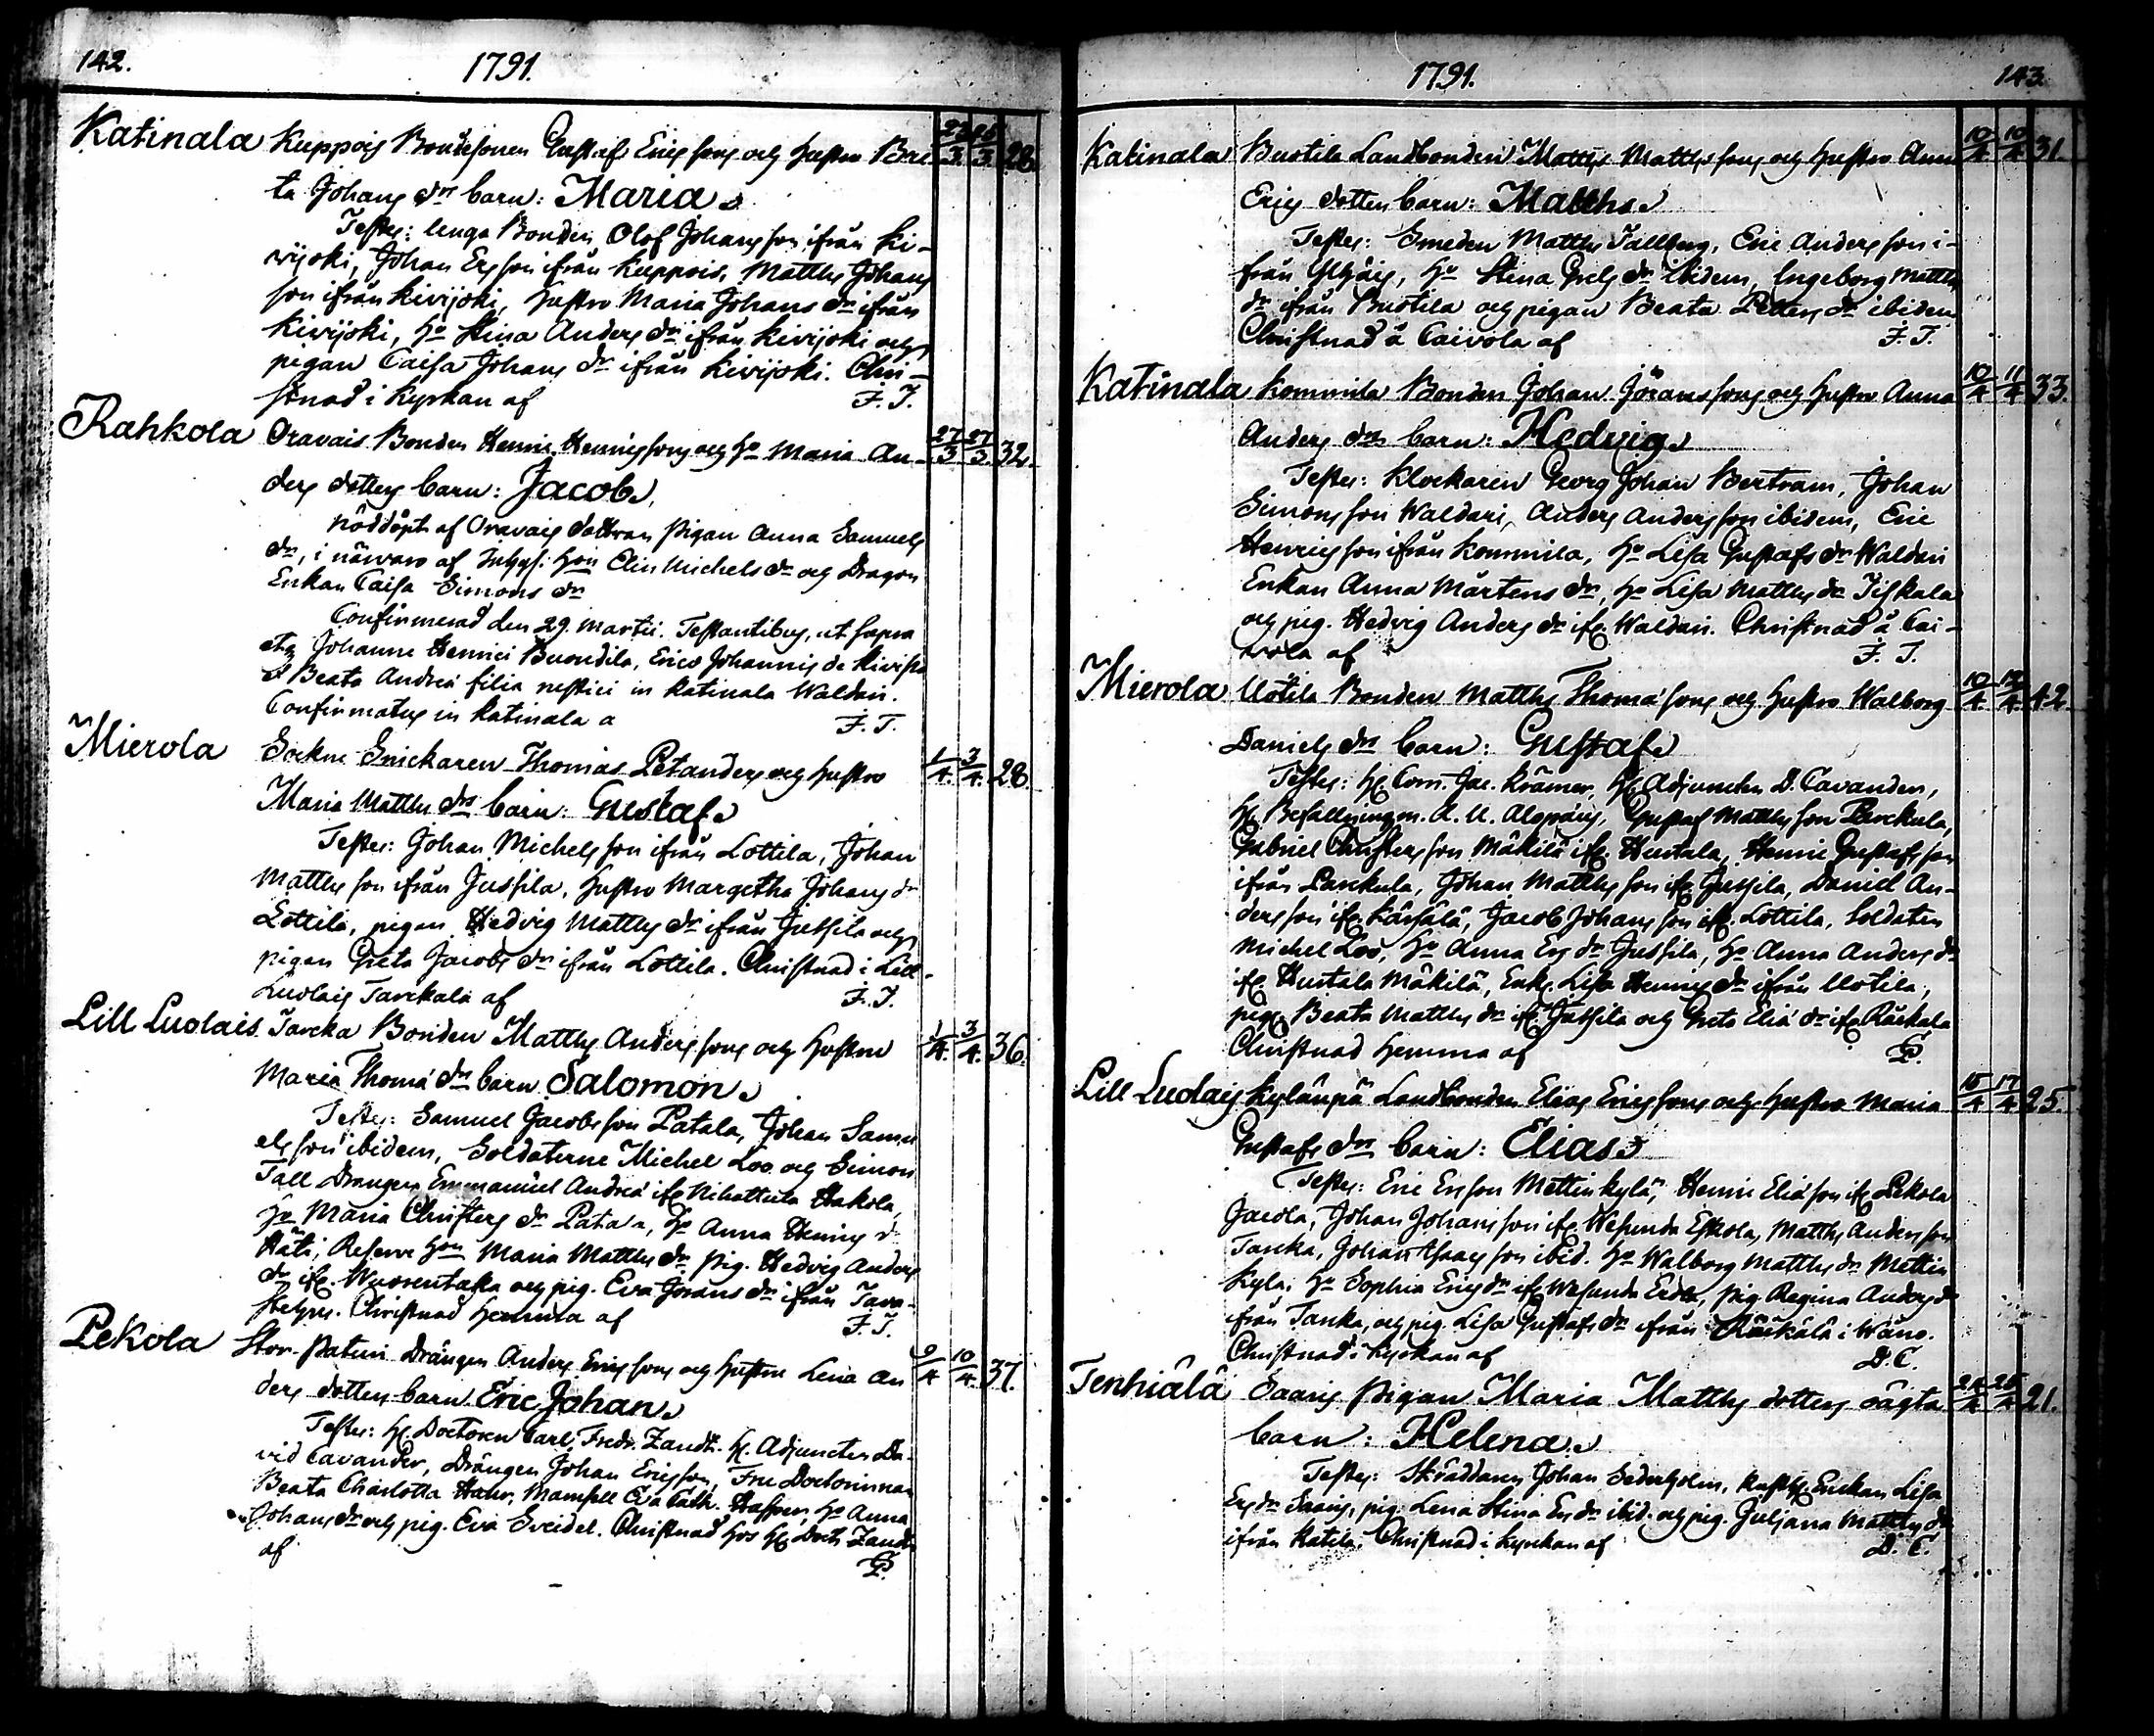 142. 1791.
Katinala Kuppois Bondesonen Gustaf Erics sons och hustru Brit 23/3 25/3 28.
ta Johans drs barn: Maria
Testes: unga Bonden Olof Johans son ifrån Ki-
vijoki, Johan Ers son ifrån Kuppois, Matths Johans
son ifrån Kivijoki, hustru Maria Johans dr ifrån
Kivijoki, ho Stina Anders dr ifrån Kivijoki och
pigan Caisa Johans dr ifrån Kivijoki. Chri-
stnad i Kyrkan af F. T.
Rahkola Oravais Bonden Henric Henrics sons och ho Maria An- 27/3 27/3 32.
ders dotters barn: Jacob
Nöddöpt af Oravais dottran pigan Anna Samuels
dr, i närvaro af Inhys: hon Elin Michels dr och Dragon
Enkan Caisa Simons dr
Confirmerad den 29. Martii. Testantibus, ut supra
etq Johanne Henrici Buondila, Erico Johannis de
et Beata Andreæ filia rustici in Katinala Waldari.
Confirmatus in Katinala a F. T.
Mierola Sockne Snickaren Thomas Petanders och hustru 1/4 3/4 28.
Maria Matths drs barn: Gustaf
Testes: Johan Michels son ifrån Lottila, Johan
Matths son ifrån Jussila, hustru Margetha Johans dr
Lottila, pigan Hedvig Matths dr ifrån Jussila och
pigan Greta Jacobs dr ifrån Lottila. Christnad i Lill
Luolais Tarckala af F. T.
Lill Luolais Tarcka Bonden Matths Anders sons och hustru 1/4 3/4 36.
Maria Thomæ drs barn Salomon
Testes: Samuel Jacobs son Patala, Johan Samu
els son ibidem, Soldaterne Michel Loo och Simon
Tall Drangen Emmanuel Andreæ ifr Nihattula Hakola,
ho Maria Christers dr Patala, ho Anna Henrics dr
Häti, Reserve hon Maria Matths dr, pig. Hedvig Anders
dr ifr. Wuorentaka och pig. Eva Jörans dr ifrån Tava-
stehus. Christnad hemma af F. T.
Pekola Stor-Paturi Drängen Anders Erics sons och hustru Lena An 9/4 10/4 37.
ders dotters barn Eric Johan
Testes: Hr Doctoren Carl Fredr. Zandt. Hr Adjuncten Da-
vid Cavander, Drängen Johan Ericsson, Fru Doctorinnan
Beata Charlotta Hahr, Mamsell Eva Cath. Hasser, ho Anna
Johans dr och pig. Eva Sveidel. Christnad hos Hr Doct: Zandt
af
1791. 143.
Katinala Bustila Landbonden Matths Matths sons och hustru Anna 10/4 10/4 31.
Erics dotters barn: Matths
Testes: Smeden Matths Tallberg, Eric Anders son i-
från, ho Stina dr ibidem, Ingeborg Matths
dr ifrån Bustila och pigan Beata Petters dr ibidem
Christnad å Caivola af F. T.
Katinala Kommila Bonden Johan Jörans sons och hustru Anna 10/4 11/4 33.
Anders drs barn: Hedvig
Testes: Klockaren Georg Johan Bertram, Johan
Simons son Waldari, Anders Anders son ibidem, Eric
Henrics son ifrån Kommila, ho Lisa Gustafs dr Waldari
Enkan Anna Mårtens dr, ho Lisa Matths dr Jiskala
och pig. Hedvig Anders dr ifr Waldari. Christnad å Cai-
vola af F. T.
Mierola Uotila Bonden Matths Thomæ sons och hustru Walborg 10/4 12/4 42.
Daniels drs barn: Gustaf
Testes: Hr Com. Jac. Krämer, Hr Adjuncten D. Cavander,
Hr Befallningsm. A. U. Alopæus, Gustaf Matths son Parckula,
Gabriel Christers son Mäkilä ifr Huntala, Henric Gustafs son
ifrån Parckula, Johan Matths son ifr Jussila, Daniel An-
ders son ifr Kärsälä, Jacob Johans son ifr Lottila, Soldaten
Michel Loo, ho Anna Ers dr Jussila, ho Anna Anders dr
ifr Huntala Mäkilä, Enk. Lisa Henrics dr ifrån Uotila,
pig. Beata Matths dr ifr Jussila och Greta Eliæ dr ifr Räckala
Christnad hemma af
Lill Luolais Kylänpä Landbonden Elias Erics sons och hustru Maria 15/4 17/4 25.
Gustafs drs barn: Elias
Testes: Eric Ersson Mettinkylä, Henric Eliæ son ifr Pekola
Jacola, Johan Johans son ifr Wesunda Eskola, Matths Anders son
Tarcka, Johan Isaacs son ibid. ho Walborg Matths dr Mettin
kyla, ho Sophia Erics dr ifr Wesunda, pig. Regina Anders dr
ifrån Tarcka, och pig. Lisa Gustafs dr ifrån Räikälä i Wåno.
Christnad i Kyrkan af D. C.
Tenhiälä Saaris pigan Maria Matths dotters oägta 24/4 25/4 21.
barn: Helena
Testes: Skräddaren Johan Sederholm, Enkan Lisa
Ers dr Saaris, pig. Lena Stina Ers dr ibid. och pig. Juliana Matths dr
ifrån Katila. Christnad i Kyrkan af D. C.